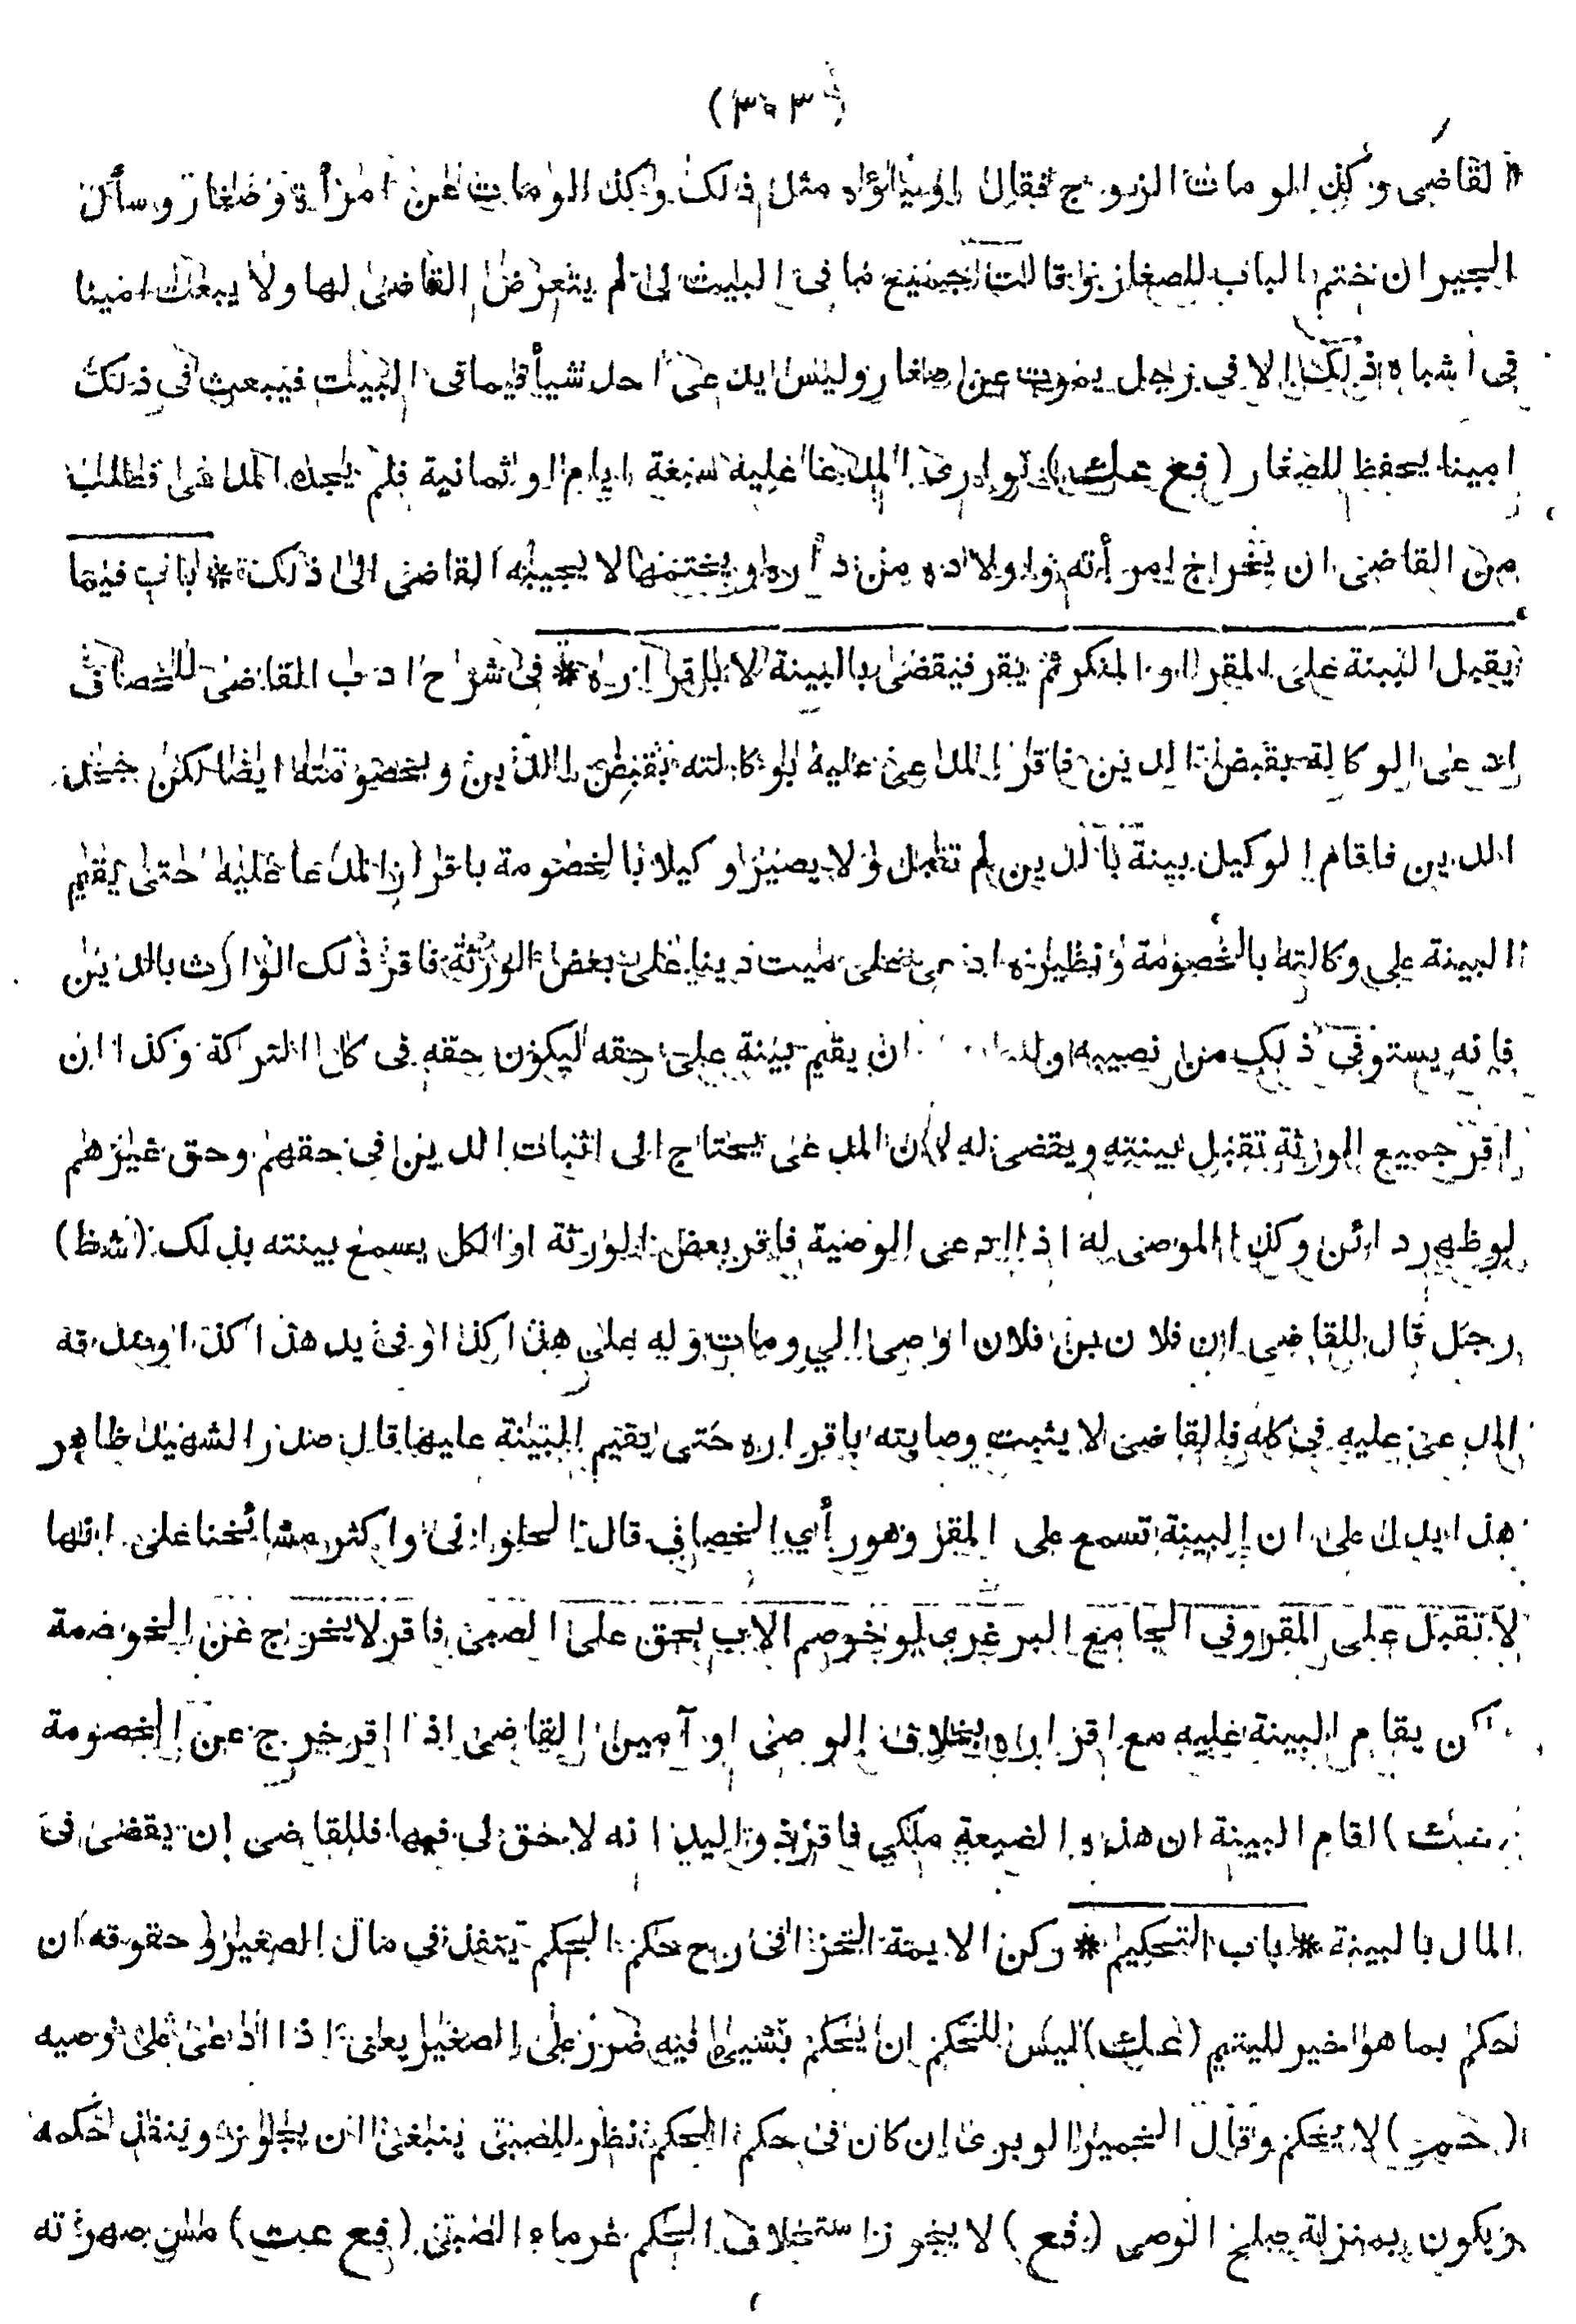 (٣٠٣)
القاضى وكذا لو مات الزوج فقال اولياؤه مثل ذلك وكذا لو مات عن امرأة وصغار وسأل
الجيران ختم الباب للصغار وقالت جميع ما فى البيت لى لم يتعرض القاضى لها ولا يبعث امينا
فى اشباه ذلك الا فى رجل يموت عن صغار وليس يدعى احد شيأ فيما فى البيت فيبعث فى ذلك
امينا يحفظ للصغار (فع عك) توارى المدعا عليه سبعة ايام او ثمانية فلم يجده المدعى فطلب
من القاضى ان يخراج امرأته واولاده من داره ويختمها لا يجيبه القاضى الى ذلك * باب فيما
يقبل البينة على المقر او المنكر ثم يقر فيقضى بالبينة لا باقراره * فى شرح ادب القاضى للخصاف
ادعى الوكالة بقبض الدين فاقر المدعى عليه بوكالته بقبض الدين وبخصومته ايضا لكن جحد
الدين فاقام الوكيل بينة بالدين لم تقبل ولا يصير وكيلا بالخصومة باقرار المدعا عليه حتى يقيم
البينة على وكالته بالخصومة ونظيره ادعى على ميت دينا على بعض الورثة فاقر ذلك الوارث بالدين
فانه يستوفى ذلك من نصيبه وله ان يقيم بينة على حقه ليكون حقه فى كل التركة وكذا ان
اقر جميع الورثة تقبل بينته ويقضى له لان المدعى يحتاج الى اثبات الدين فى حقهم وحق غيرهم
لو ظهر دائن وكذا الموصى له اذا ادعى الوصية فاقر بعض الورثة او الكل يسمع بينته بذلك (شظ)
رجل قال للقاضى ان فلان بن فلان اوصى الي ومات وله على هذا كذا او فى يد هذا كذا وصدقه
المدعى عليه فى كله فالقاضى لا يثبت وصايته باقراره حتى يقيم البينة عليها قال صدر الشهيد ظاهر
هذا يدل على ان البينة تسمع على المقر وهو رأي الخصاف قال الحلوانى واكثر مشائخنا على انها
لا تقبل على المقر وفى الجامع البرغرى لو خوصم الاب بحق على الصبى فاقر لا يخرج عن الخوصمة
لكن يقام البينة عليه مع اقراره بخلاف الوصى او آمين القاضى اذا اقر خرج عن الخصومة
اقام البينة ان هذه الضيعة ملكي فاقر ذو اليد انه لا حق لى فيها فللقاضى ان يقضى فى
المال بالبينة * باب التحكيم * ركن الايمة حكم الحكم ينفذ فى مال الصغير وحقوقه ان
حكم بما هو خير لليتيم (عك) ليس للحكم ان يحكم بشيئ فيه ضرر على الصغير يعنى اذا ادعى على وصيه
لا يحكم وقال الخمير الوبرى ان كان فى حكم الحكم نظر للصبى ينبغى ان يجاوزه وينفذ حكمه
ويكون بمنزلة صلح الوصى (فع) لا يجوز استخلاف الحكم غرماء الصبى (فع عت) مس صهرته